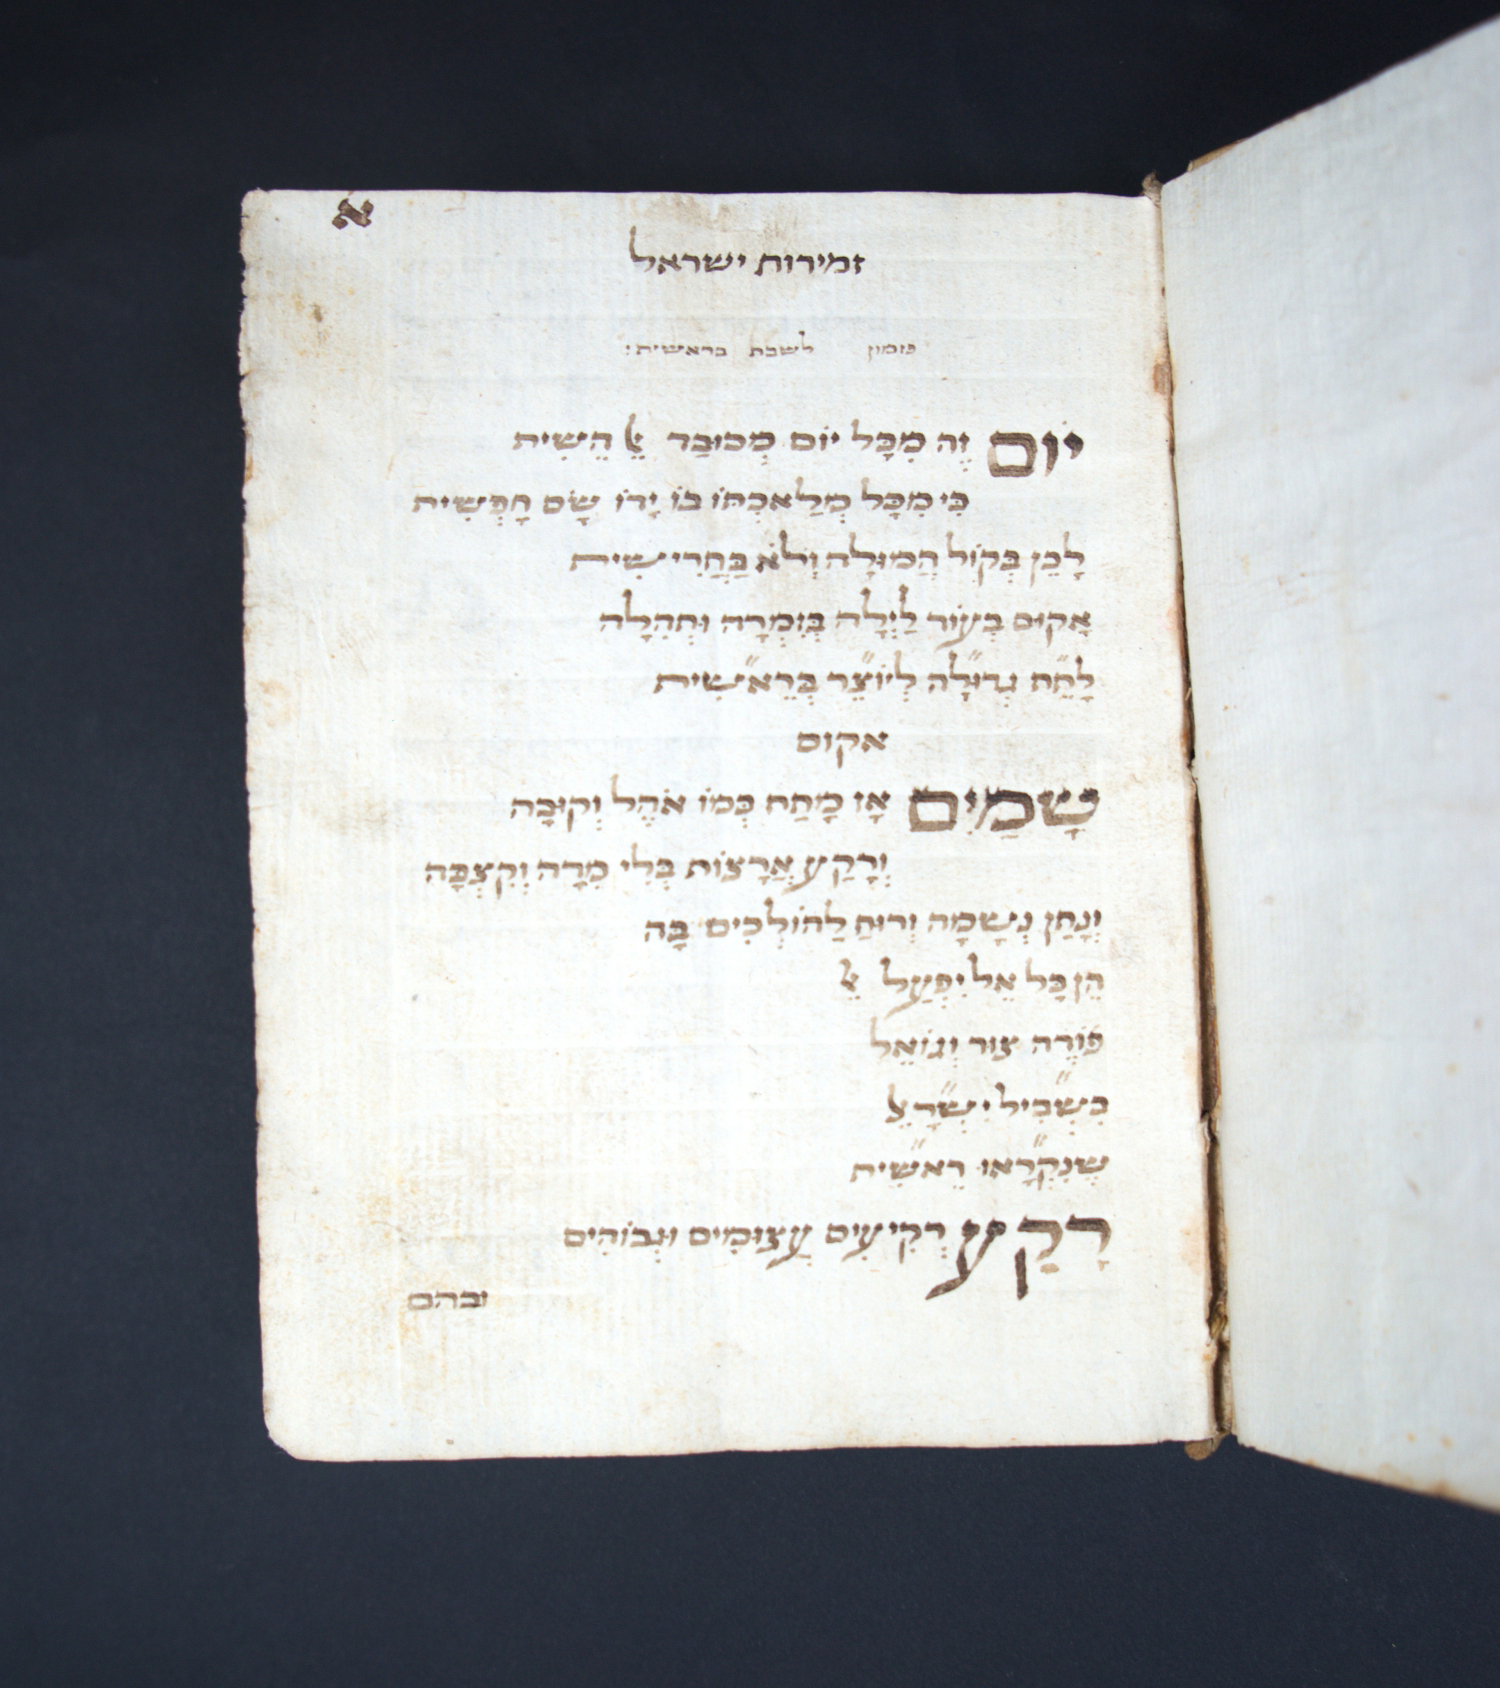 א
זמירות ישראל
פזמון לשבת בראשית:
יוֹם זֶה מִכָּל יוֹם מְכוּבַּד אֵל הֵשִׁית
כִּי מִכָּל מְלַאכְתּוֹ בוֹ יָדוֹ שָׂם חָפְשִׁית
לָכֵן בְּקוֹל הֲמוּלָה וְלֹא בַּחֲרִישִׁית
אָקוּם בְּעוֹד לַיְלָה בְּזִמְרָה וּתְהִלָּה
לָתֵ״ת גְדוּ״לָּה לְיוֹ״צֵר בְּרֵא״שִׁית
אקום
שָׁמַיִם אָז מָתַח כְּמוֹ אֹהֶל וְקוּבָּה
וְרָקַע אֲרָצוֹת בְּלִי מִדָּה וְקִצְבָּה
וְנָתַן נְשָׁמָה וְרוּחַ לַהוֹלְכִים בָּהּ
הֵן כָּל אֵל יִפְעַל אֵל
פּוֹדֶה צוּר וְגוֹאֵל
בִּשְׁ״בִיל יִשְׂ״רָאֵל
שֶׁנִּקְ״רָאוּ רֵא״שִׁית
רָקַע רְקִיעִים עֲצוּמִים וּגְבוֹהִים
ובהם